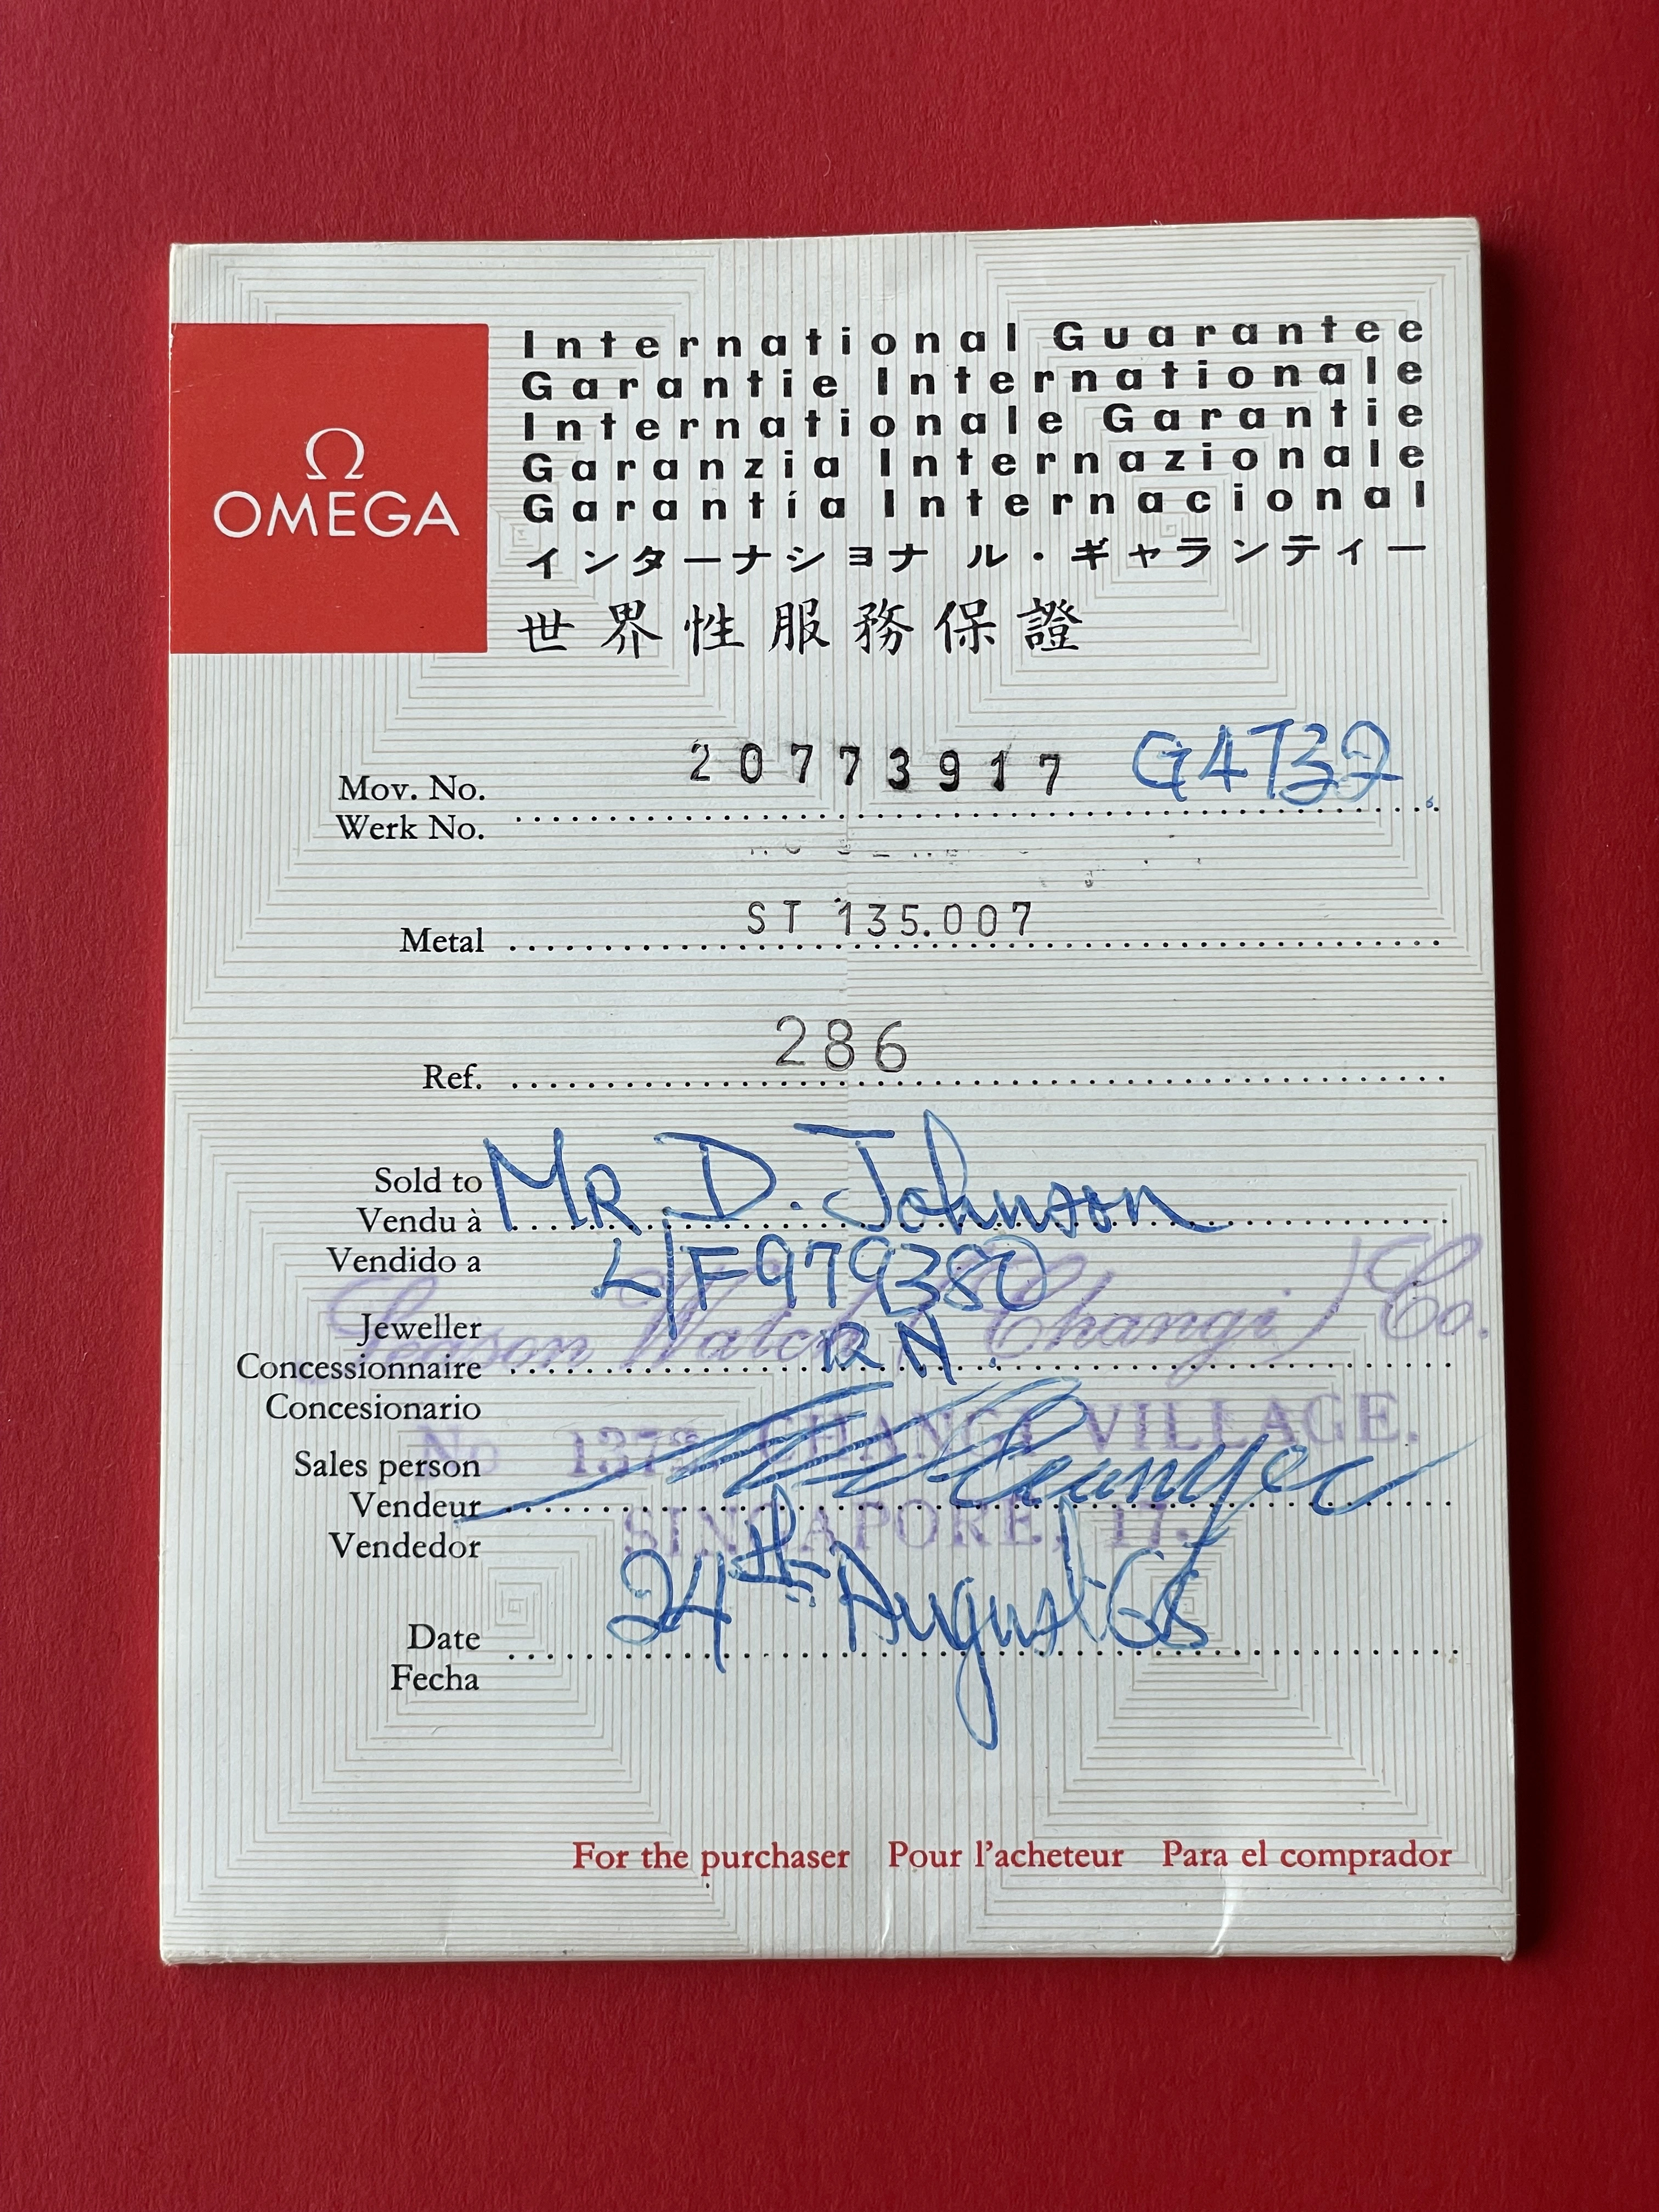 Ω
OMEGA
International Guarantee
Garantie Internationale
Internationale Garantie
Garanzia Internazionale
Garantía Internacional
インターナショナル・ギャランティー
世界性服務保證
20773917 G4732
Mov. No.
Werk No.
ST 135.007
Metal
286
Ref.
Sold to Mr D. Johnson
Vendu à
Vendido a L/F979380
Jeweller Season Watch (Changi) Co.
Concessionnaire RN.
Concesionario
No CHANGI VILLAGE.
Sales person
Vendeur
SINGAPORE, 17.
Vendedor
24th August
Date
Fecha
For the purchaser Pour l'acheteur Para el comprador